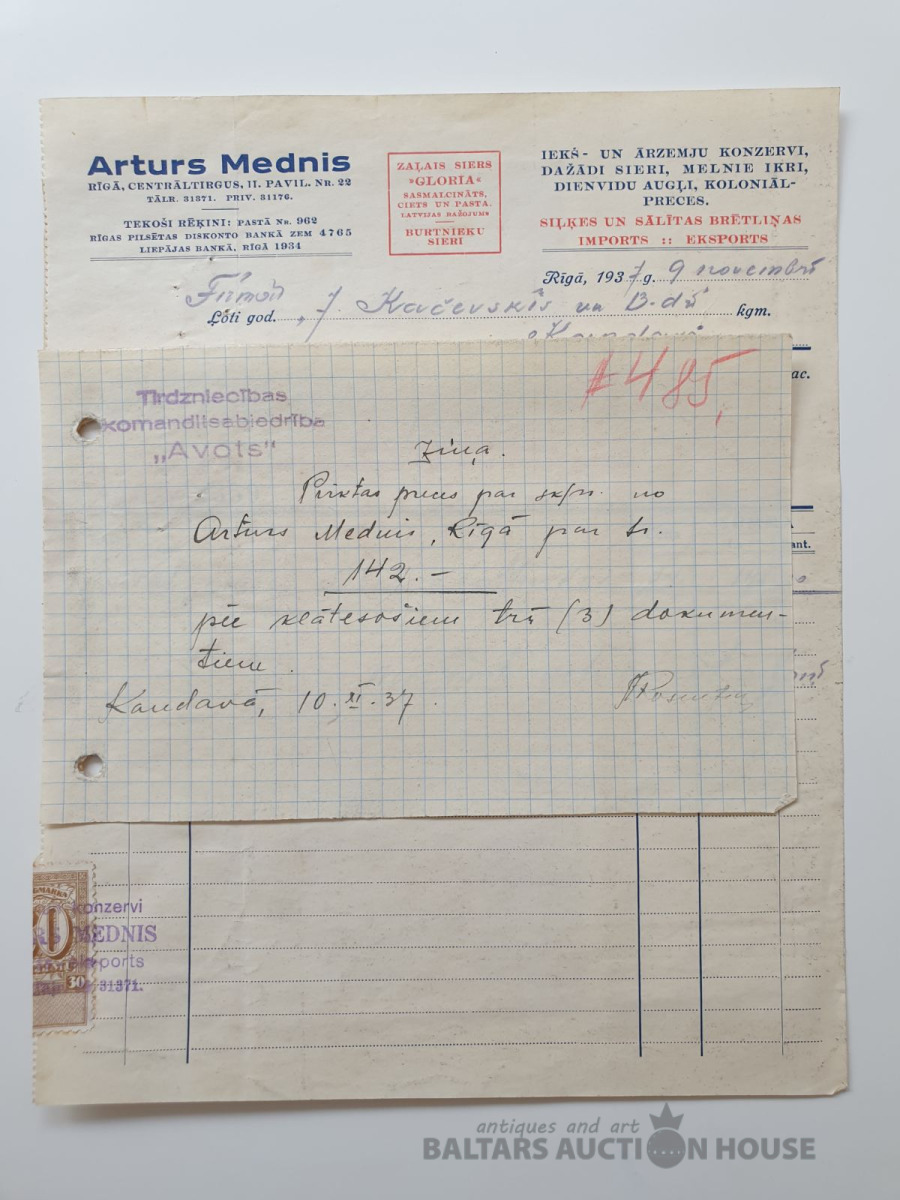 Arturs Mednis
RĪGĀ, CENTRĀLTIRGUS, II. PAVIL. NR. 22
TĀLR. 31371. PRIV. 31176.
TEKOŠI RĒĶINI: PASTĀ NR. 962
RĪGAS PILSĒTAS DISKONTO BANKĀ ZEM 4765
LIEPĀJAS BANKĀ, RĪGĀ 1934
ZAĻAIS SIERS
»GLORIA«
SASMALCINĀTS,
CIETS UN PASTA.
LATVIJAS RAŽOJUMS
BURTNIEKU
SIERI
IEKŠ- UN ĀRZEMJU KONZERVI,
DAŽĀDI SIERI, MELNIE IKRI,
DIENVIDU AUGĻI, KOLONIĀL-
PRECES.
SIĻĶES UN SĀLĪTAS BRĒTLIŅAS
IMPORTS :: EKSPORTS
Rīgā, 1937 g. 9 novembrī
Firmai
Ļoti god. J. Kačevskis un B-dr. kgm.
Kandavā
ac.
Tirdzniecības
komandītsabiedrība
„Avots"
#485,
Ziņa.
Pirktas preces par skr. no
Arturs Mednis, Rīgā par Ls.
142.-
pēc klātesošiem trīs (3) dokumen-
tiem.
Kandavā, 10.XI.37.
ant.
30
konzervi
MEDNIS
ports
31371.
antiques and art
BALTARS AUCTION HOUSE